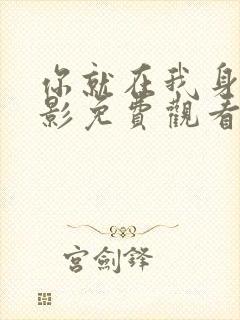 你就在我身
影免費觀看
宮劍鋒